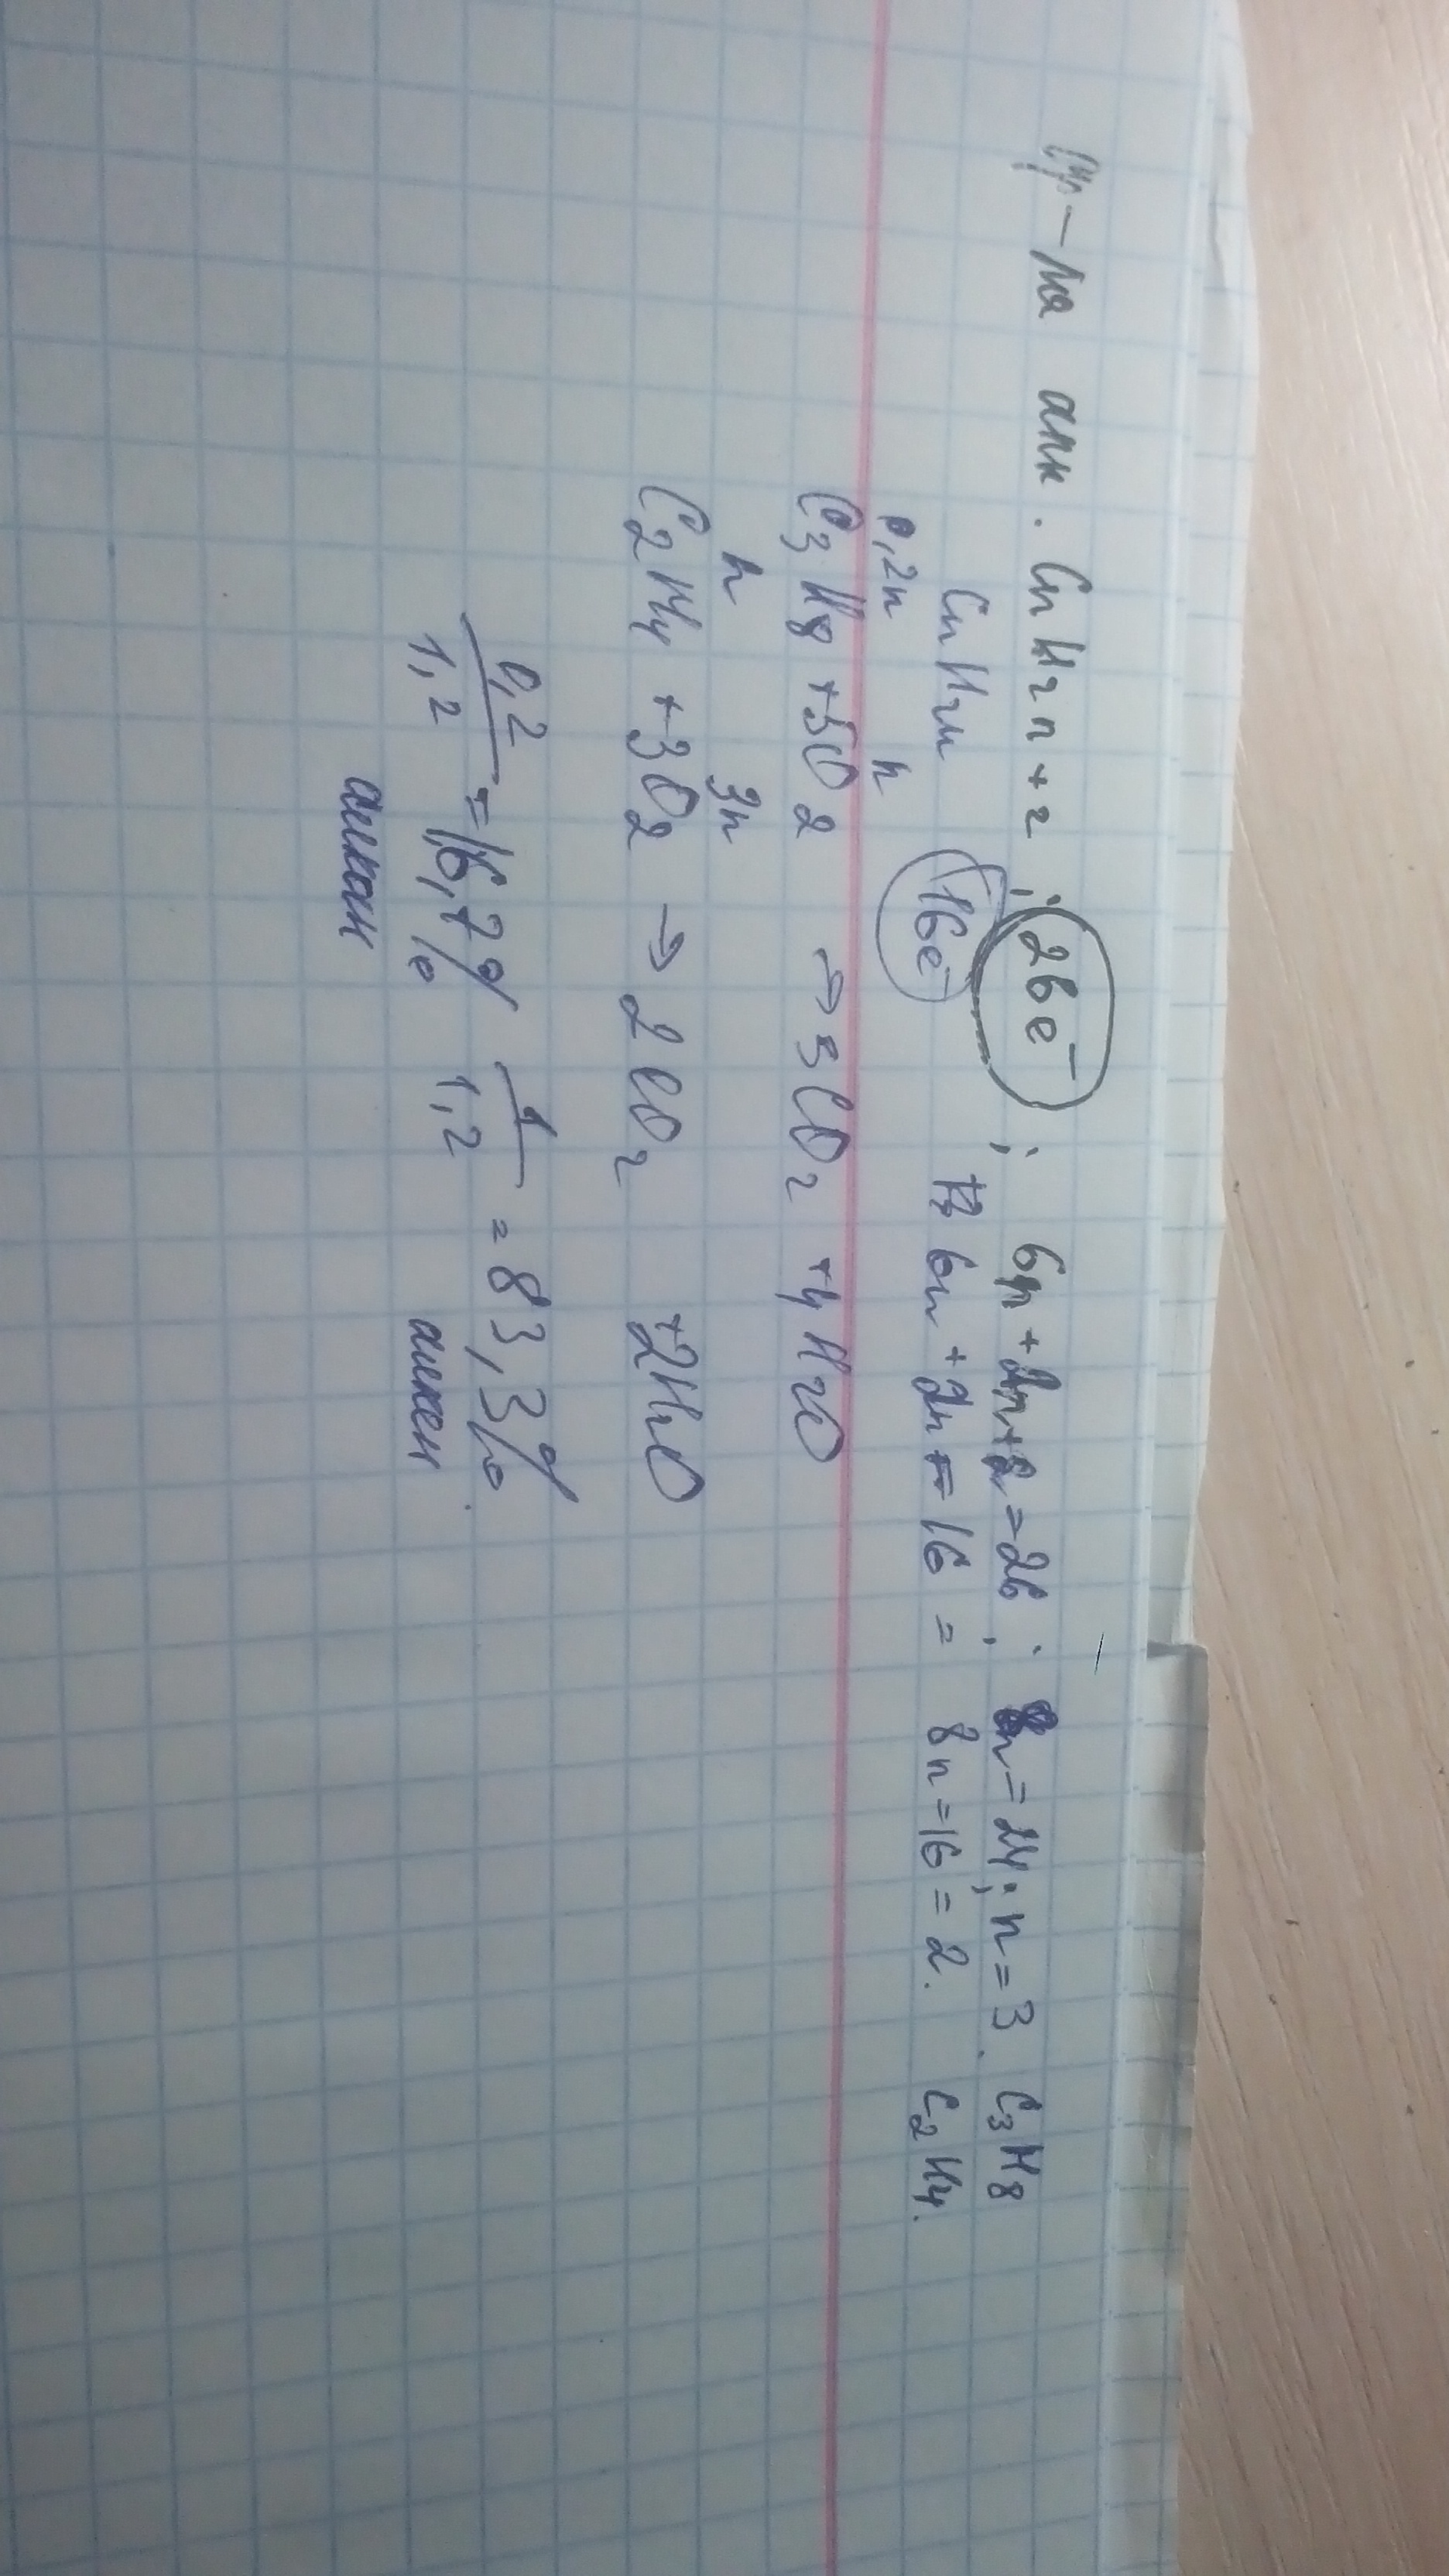 ф-ла алк. CnH2n+2; 26e⁻; 6n+2n+2=26; 8n=24; n=3. C3H8
CnH2n 16e⁻ 6n+2n=16 = 8n=16=2. C2H4.
0,2n n
C3H8 +5O2 → 3CO2 +4H2O
n 3n
C2H4 +3O2 → 2CO2 +2H2O
0,2/1,2 = 16,7% 1/1,2 = 83,3%.
алкан алкен